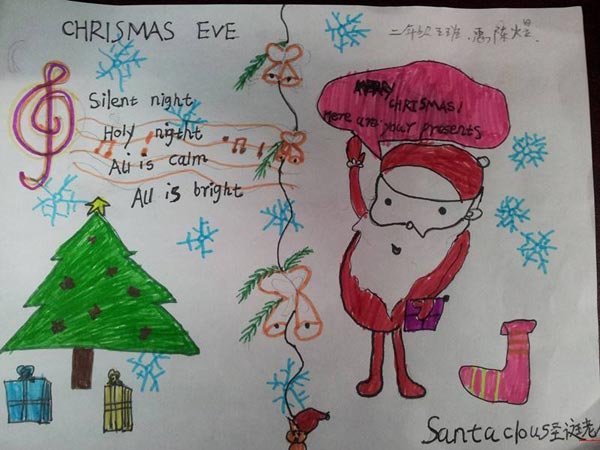 CHRISMAS EVE
二年级五班 惠陈煜
Silent night
Holy night
All is calm
All is bright
MERRY
CHRISMAS!
Here are your presents
Santa clous圣诞老人